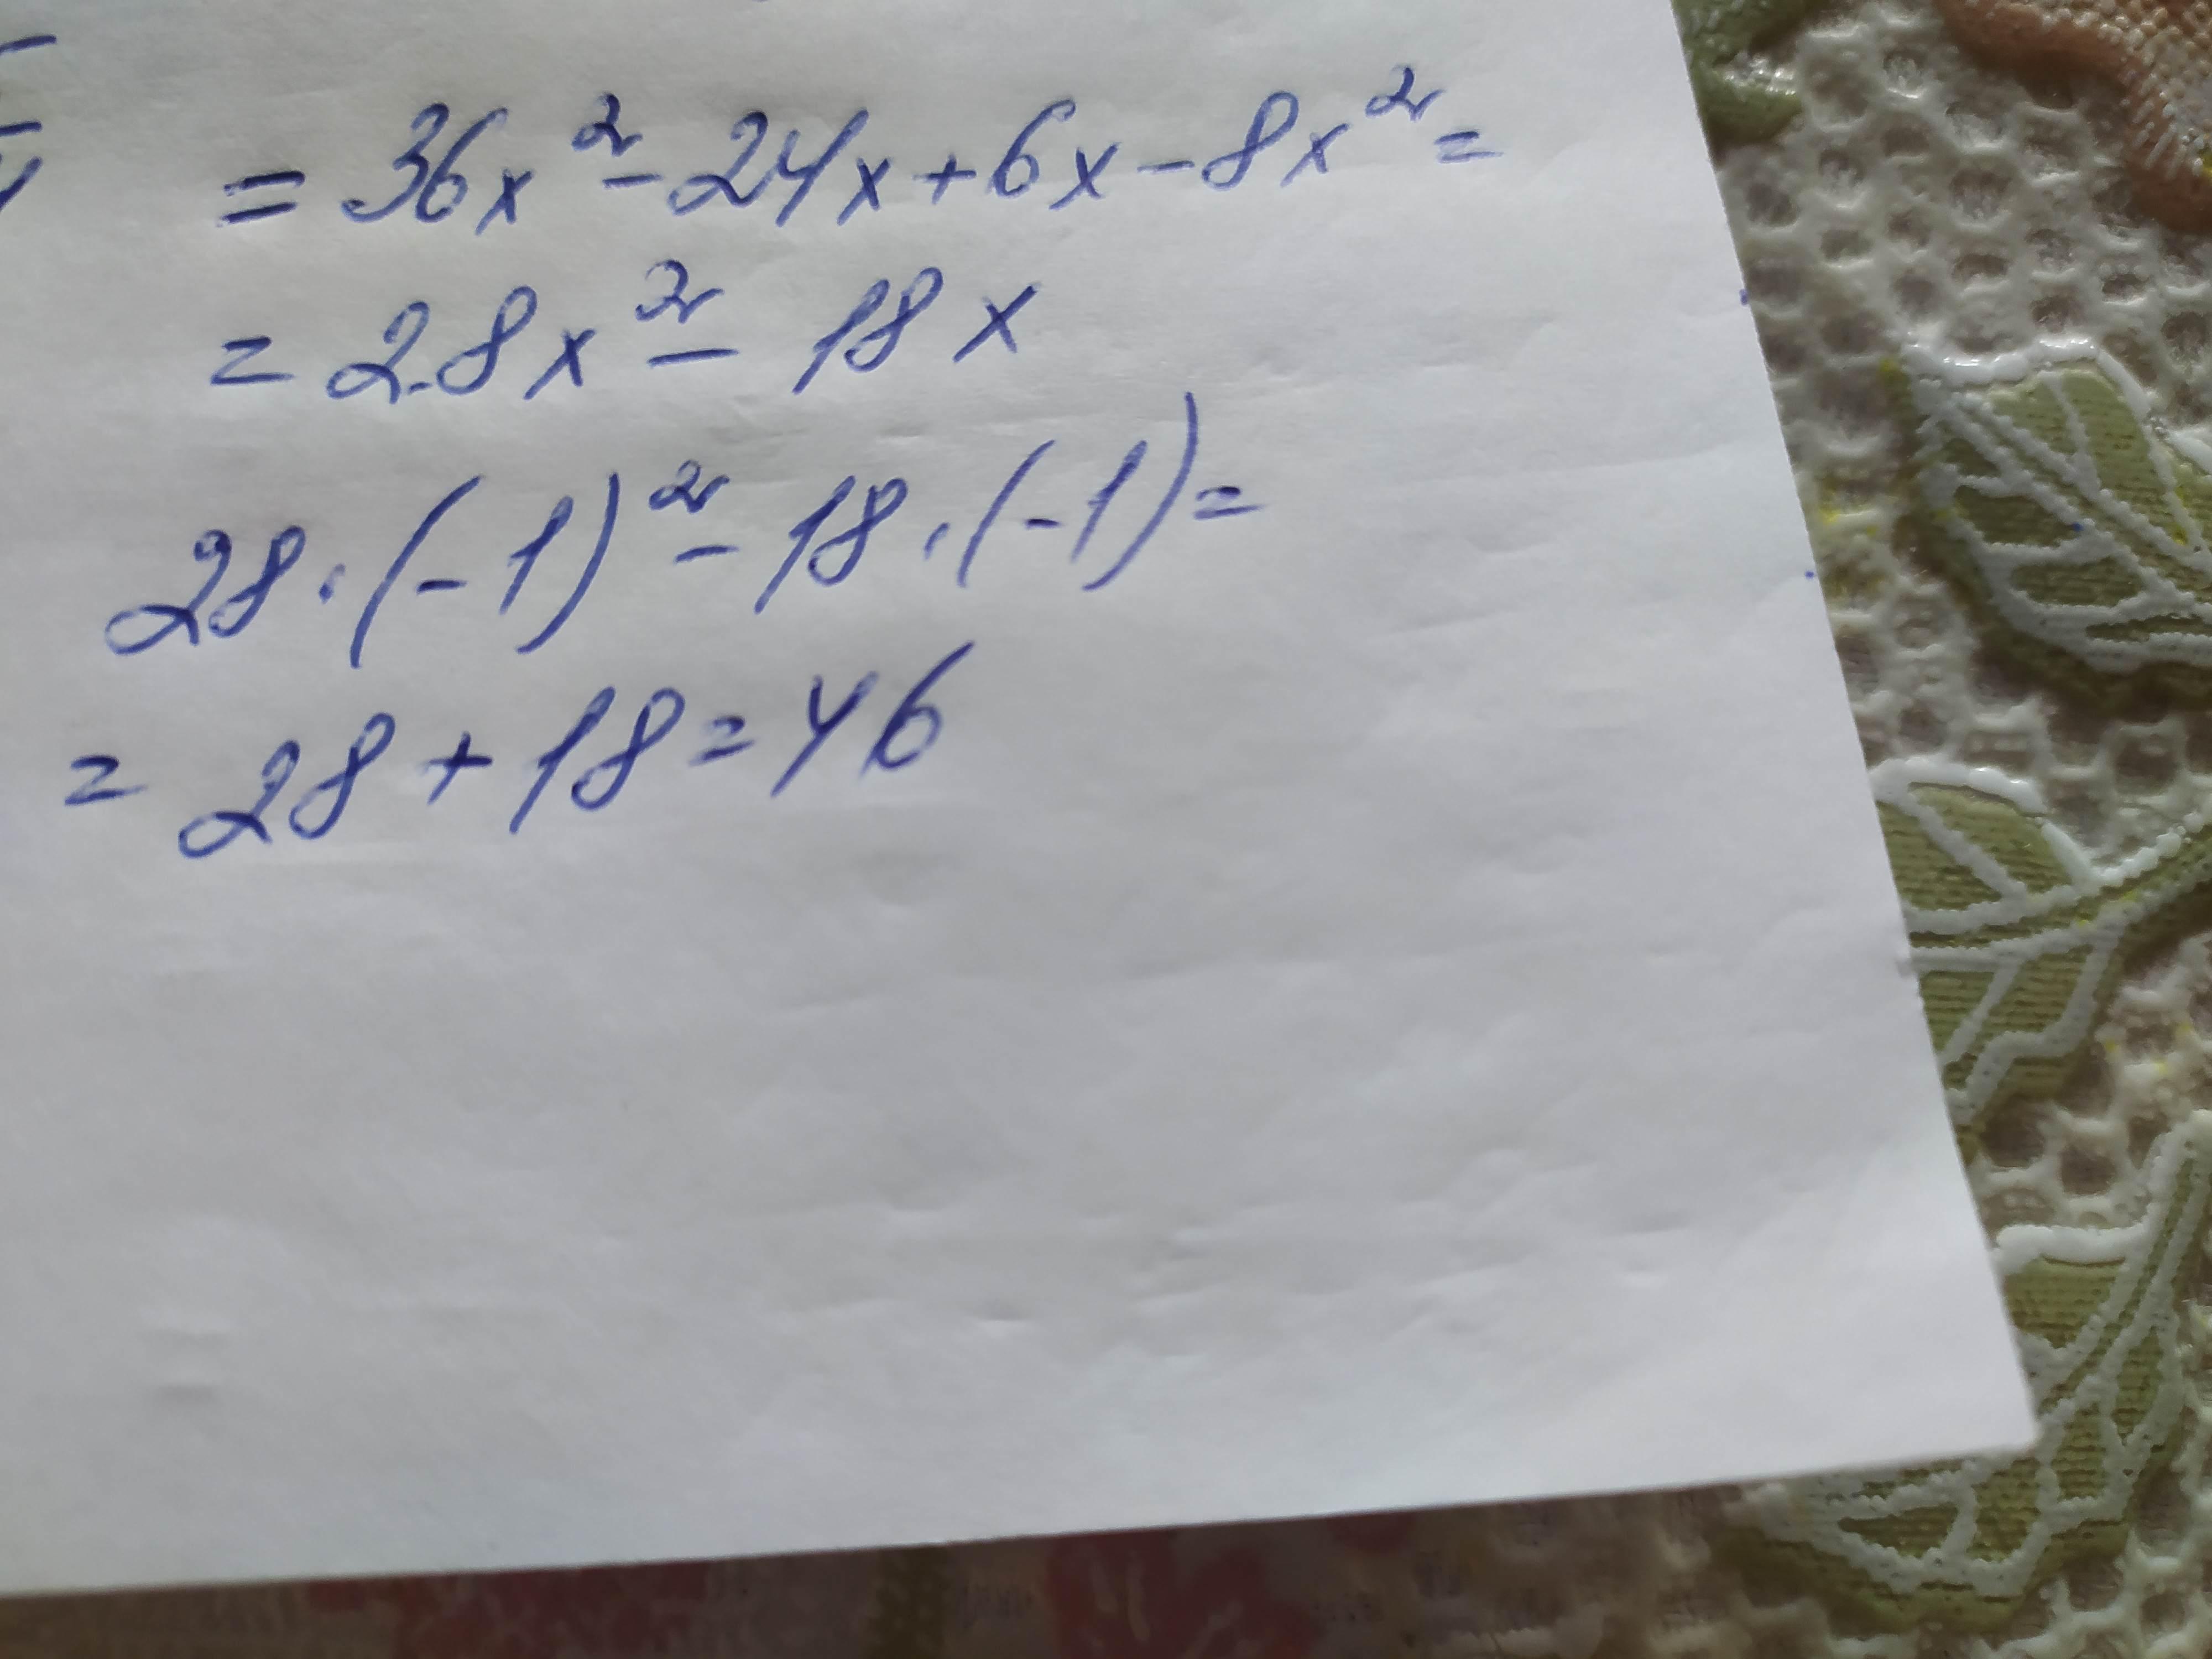 = 36x² - 24x + 6x - 8x² =
= 28x² - 18x
28 · (-1)² - 18 · (-1) =
= 28 + 18 = 46